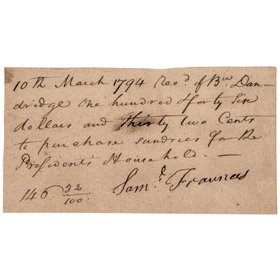 10th March 1794 Rec'd of Bw Dan-
dridge One hundred & forty Six
dollars and thirty two Cents
to purchase sundries for the
President's Household. —
146 32/100 Saml Fraunces